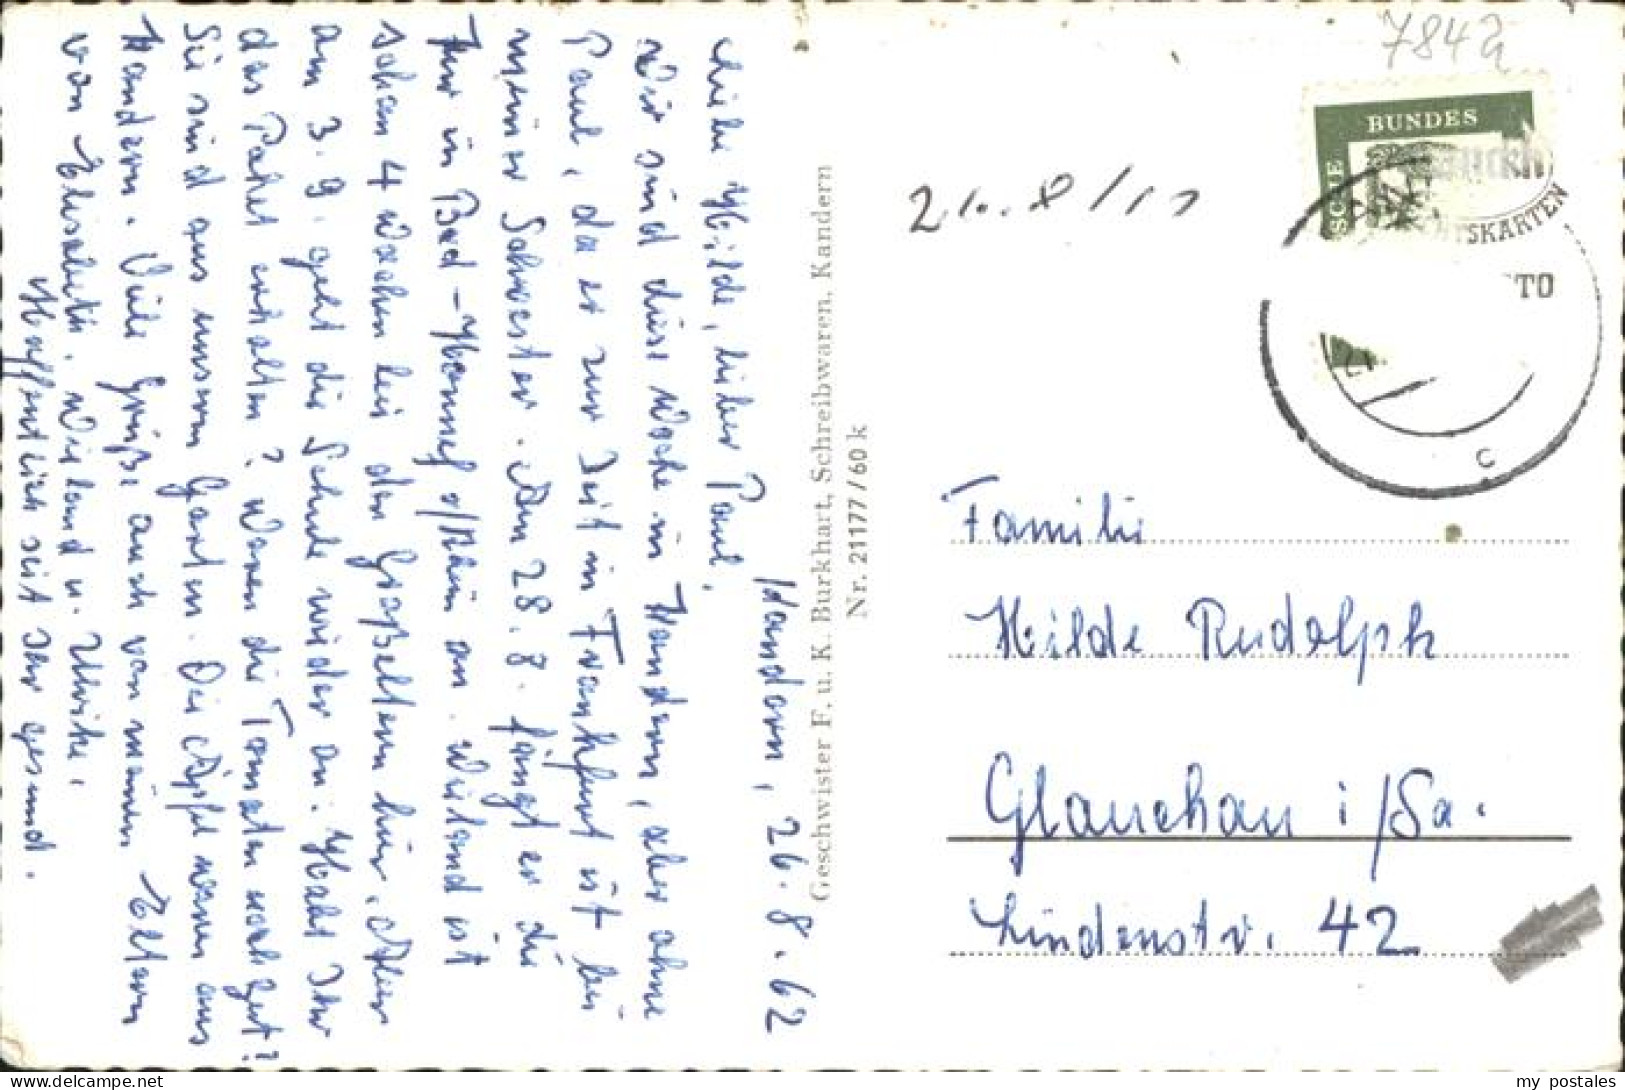 Kandern, 26.8.62
Liebe Hilde, lieber Paul,
Wir sind diese Woche in Kandern, aber ohne
Paul, da er zur Zeit in Frankfurt ist bei
meiner Schwester. Am 28.8. fängt er die
Kur in Bad-Honnef a/Rhein an. Wieland ist
schon 4 Wochen bei den Großeltern hier. Aber
am 3.9. geht die Schule wieder an. Habt Ihr
das Paket erhalten? Waren die Tomaten noch gut?
Sie sind aus unserem Garten. Die Äpfel waren aus
Kandern. Viele Grüße auch von meinen Eltern
von Elisabeth, Wieland u. Ulrike.
Hoffentlich seid Ihr gesund.
Geschwister F. u. K. Burkhart, Schreibwaren, Kandern
Nr. 21177/60 k
7842
BUNDES
TSKARTEN
TO
c
Familie
Hilde Rudolph
Glauchau i/Sa.
Lindenstr. 42
my postales